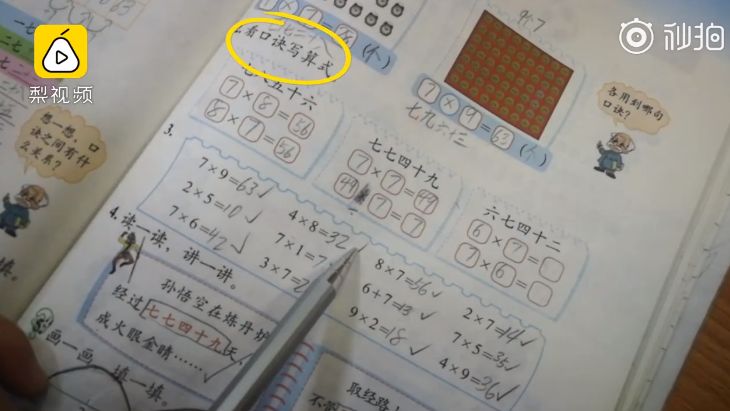 梨视频
秒拍
7×7=49
看口诀写算式
各用到哪句
口诀?
7×9=63(个)
七九六十三
想一想,口
诀之间有什
么关系?
七八五十六
7×8=56
8×7=56
七七四十九
7×7=49
49 7=7
六七四十二
6×7=
7×6=
3.
7×9=63✓
4×8=32
8×7=56✓
2×7=14✓
2×5=10✓
7×1=7
6+7=13✓
7×5=35✓
7×6=42✓
3×7=2
9×2=18✓
4×9=36✓
4.读一读,讲一讲。
孙悟空在炼丹炉
经过七七四十九天,
成火眼金睛……
画一画,填一填。
取经路上